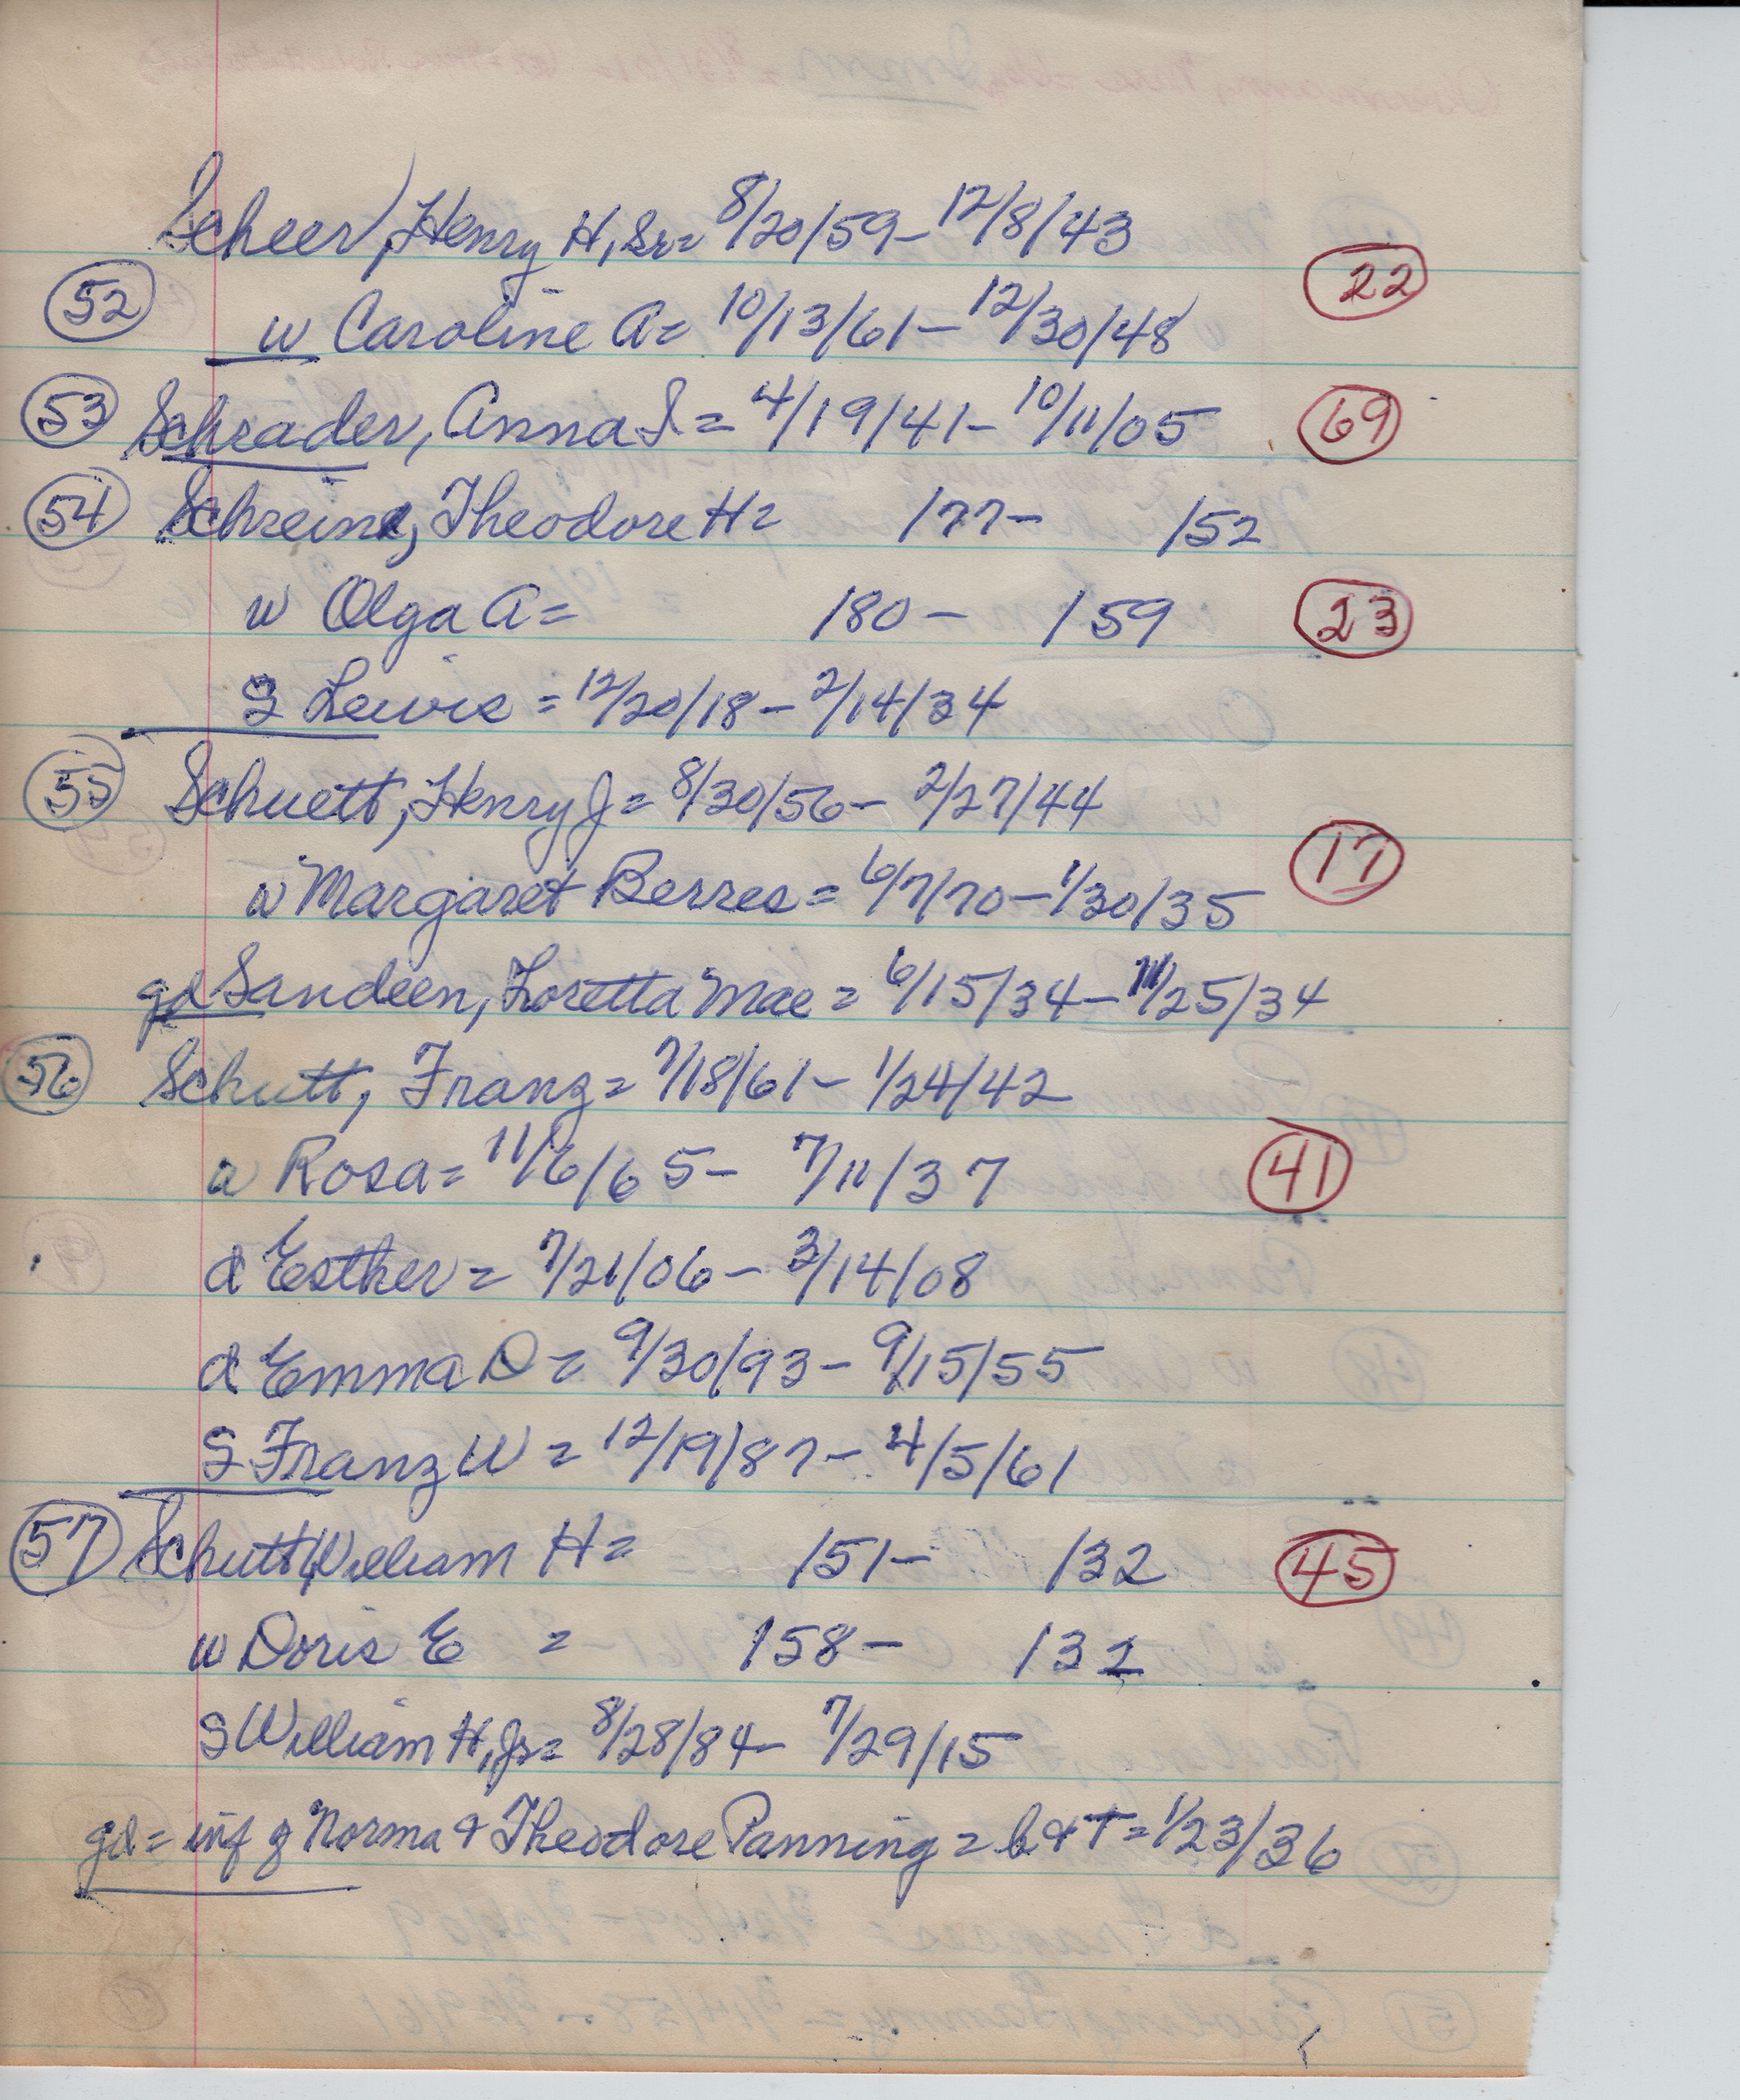 Scheer, Henry H, Sr= 8/20/59- 12/8/43
52 w Caroline A= 10/13/61- 12/30/48 22
53 Schrader, Anna S= 4/19/41- 10/11/05 69
54 Schreine, Theodore H= /77- /52
w Olga A= /80- /59 23
S Lewis = 12/20/18- 2/14/34
55 Schuett, Henry J= 8/30/56- 2/27/44
w Margaret Berres = 6/7/70-1/30/35 17
gd Sandeen, Loretta Mae = 6/15/34- 11/25/34
56 Schutt, Franz= 7/18/61- 1/24/42
w Rosa= 11/6/65- 7/11/37 41
d Esther = 7/21/06- 3/14/08
d Emma D= 9/30/93- 9/15/55
S Franz W = 12/19/87- 4/5/61
57 Schutt, William H= /51- /32 45
w Doris E = /58- /32
S William H, Jr= 8/28/84- 7/29/15
gd = inf of Norma & Theodore Panning = b & T = 1/23/36